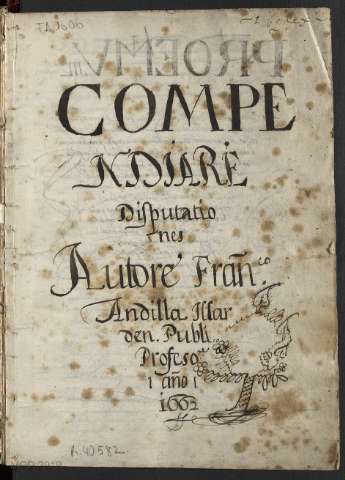 COMPE
NDIARĖ
Disputatio
nes
Autore Fran.co
Andilla Illar
den. Publi
Profeso
1 año 1
1662
R.40582